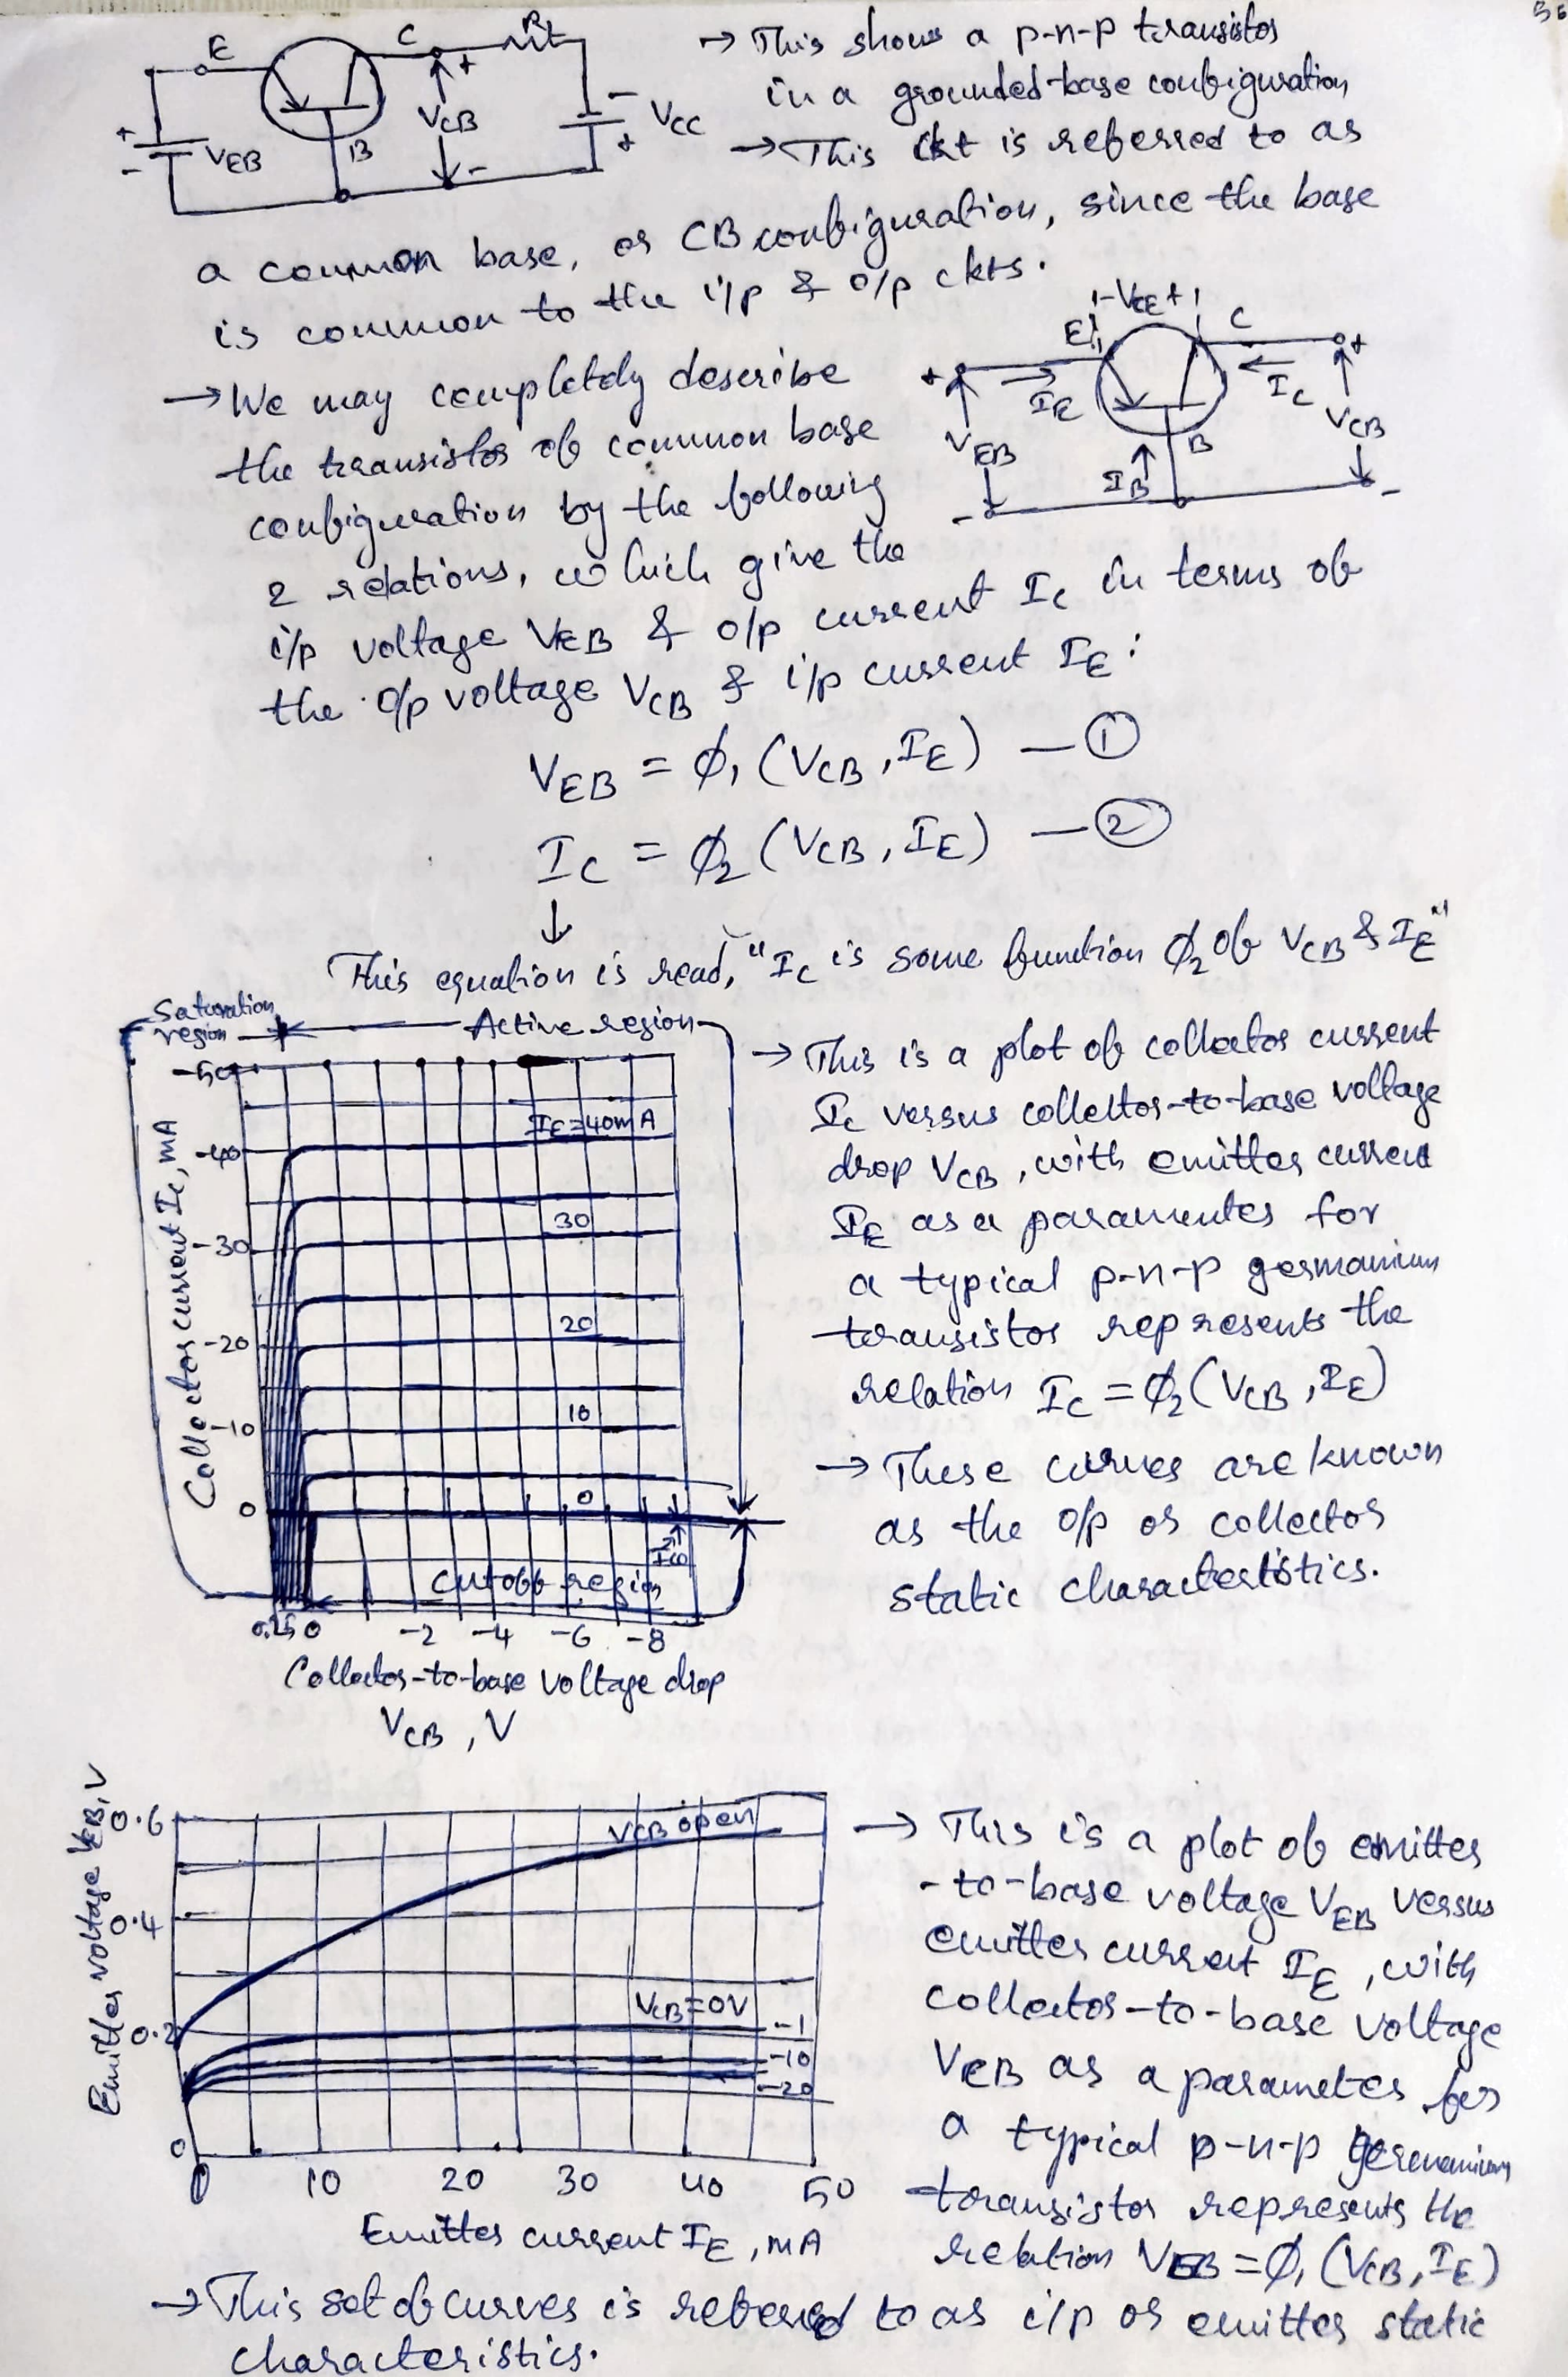 E
C
RL
+
→ This shows a p-n-p transistor
in a grounded-base configuration
+
-
VEB
B
VCB
-
-
+
VCC
→ This ckt is referred to as
a common base, or CB configuration, since the base
is common to the i/p & o/p ckts.
→ We may completely describe
the transistor of common base
configuration by the following
2 relations, which give the
i/p voltage VEB & o/p current Ic in terms of
the o/p voltage VCB & i/p current IE:
-VCE+
E
C
+
+
IE
IC
VEB
VCB
IB
B
-
-
VEB = φ1 (VCB, IE) — ①
IC = φ2 (VCB, IE) — ②
↓
This equation is read, "Ic is some function φ2 of VCB & IE"
Saturation
region
Active region
-50
IE=40mA
-40
30
-30
20
-20
10
-10
0
0
Ico
cutoff region
0.25 0 -2 -4 -6 -8
Collector current Ic, mA
Collector-to-base voltage drop
VCB, V
→ This is a plot of collector current
Ic versus collector-to-base voltage
drop VCB, with emitter current
IE as a paramenter for
a typical p-n-p germanium
transistor represents the
relation IC = φ2 (VCB, IE)
→ These curves are known
as the o/p or collector
static characteristics.
Emitter voltage VEB, V
0.6
VCB open
0.4
VCB=0V
0.2
-1
-10
-20
0
0 10 20 30 40 50
Emitter current IE, mA
→ This is a plot of emitter
-to-base voltage VEB versus
emitter current IE, with
collector-to-base voltage
VCB as a parameter for
a typical p-n-p germanium
transistor represents the
relation VEB = φ1 (VCB, IE)
→ This set of curves is refered to as i/p or emitter static
characteristics.